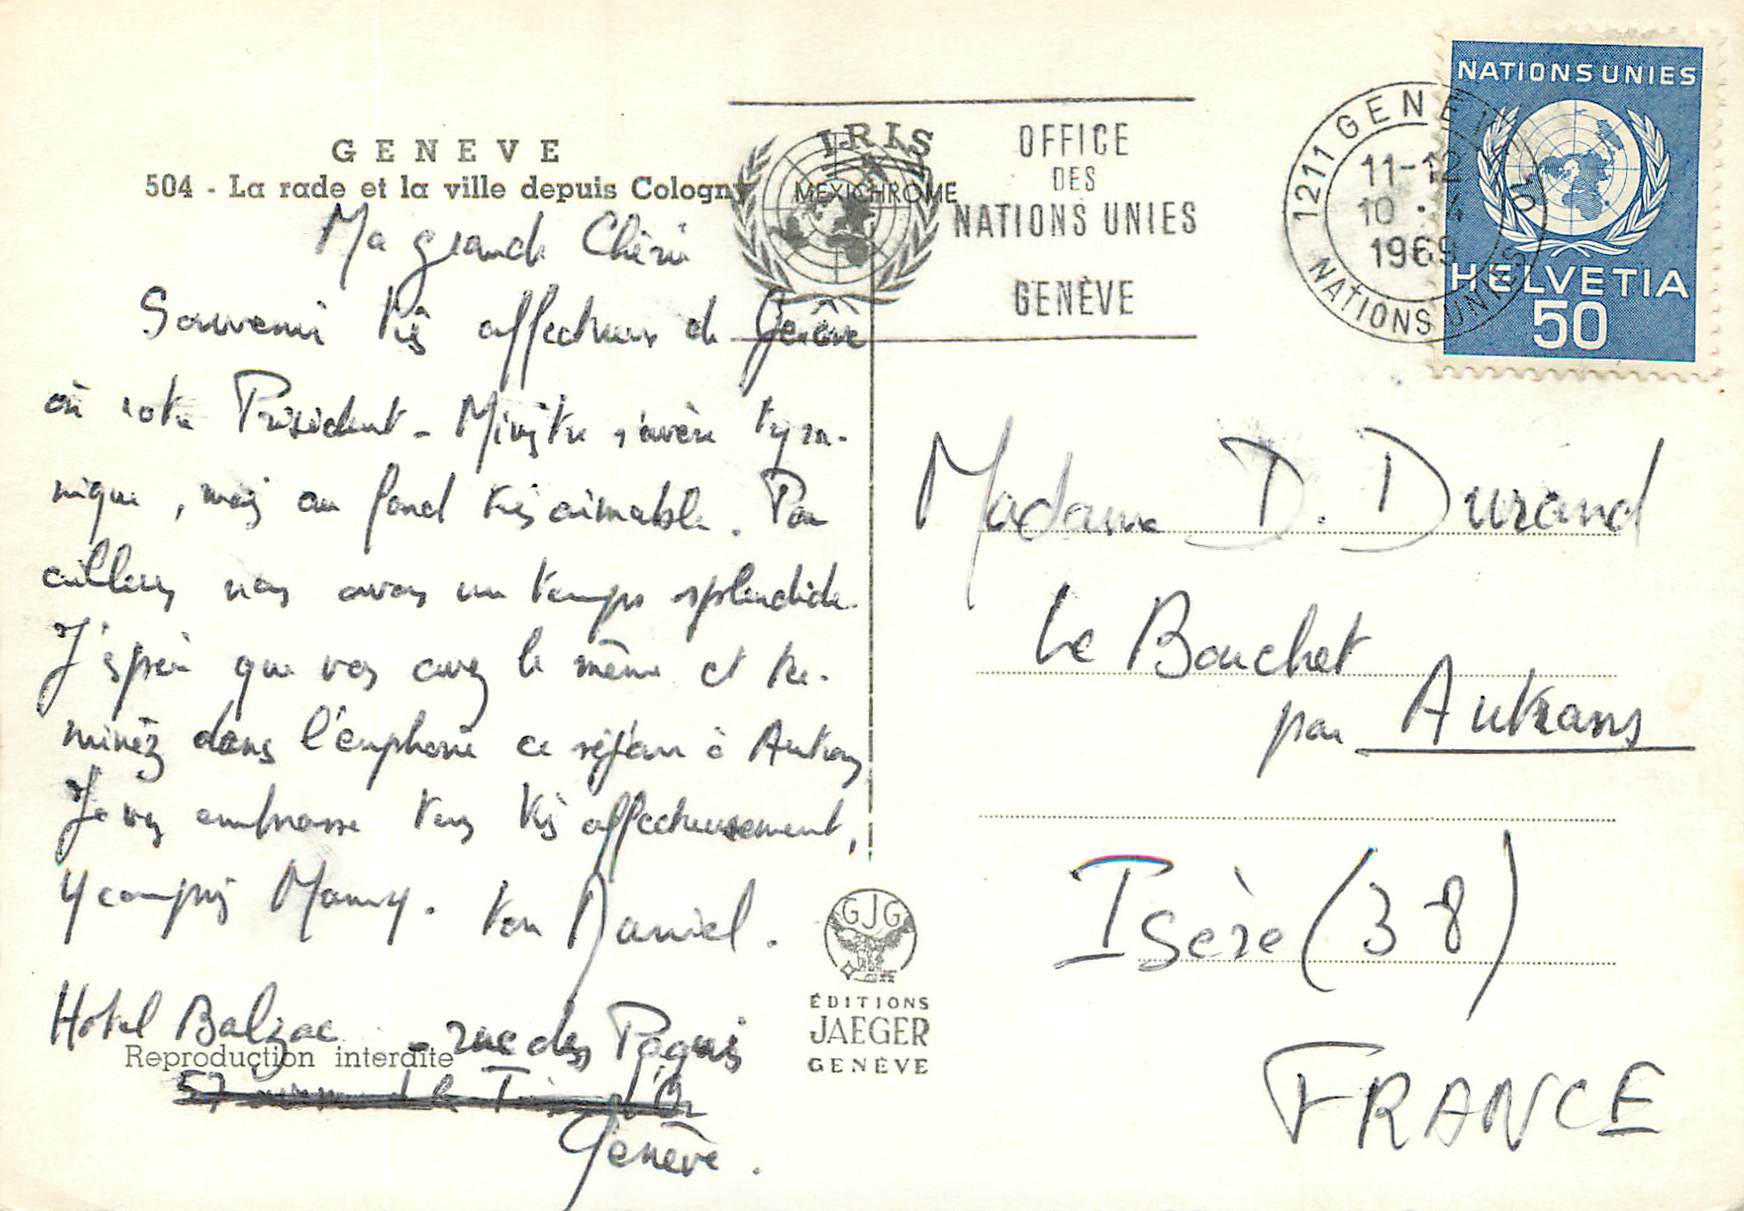 GENEVE
504 - La rade et la ville depuis Cologny
IRIS
MEXICHROME
OFFICE
DES
NATIONS UNIES
GENÈVE
1211 GENÈVE 10
11-12
10.4
1969
NATIONS UNIES
NATIONS UNIES
HELVETIA
50
Ma grande Chérie
Souvenir très affectueux de Genève
où notre Président-Ministre s'avère tyran-
nique, mais au fond très aimable. Par
ailleurs nous avons un temps splendide.
J'espère que vous avez le même et ter-
minez dans l'euphorie ce séjour à Autrans
Je vous embrasse tous très affectueusement,
y compris Mamy. ton Daniel.
Hotel Balzac - rue des Pâquis
57
Genève.
Reproduction interdite
GJG
ÉDITIONS
JAEGER
GENÈVE
Madame D. Durand
Le Bouchet
par Autrans
Isère (38)
FRANCE